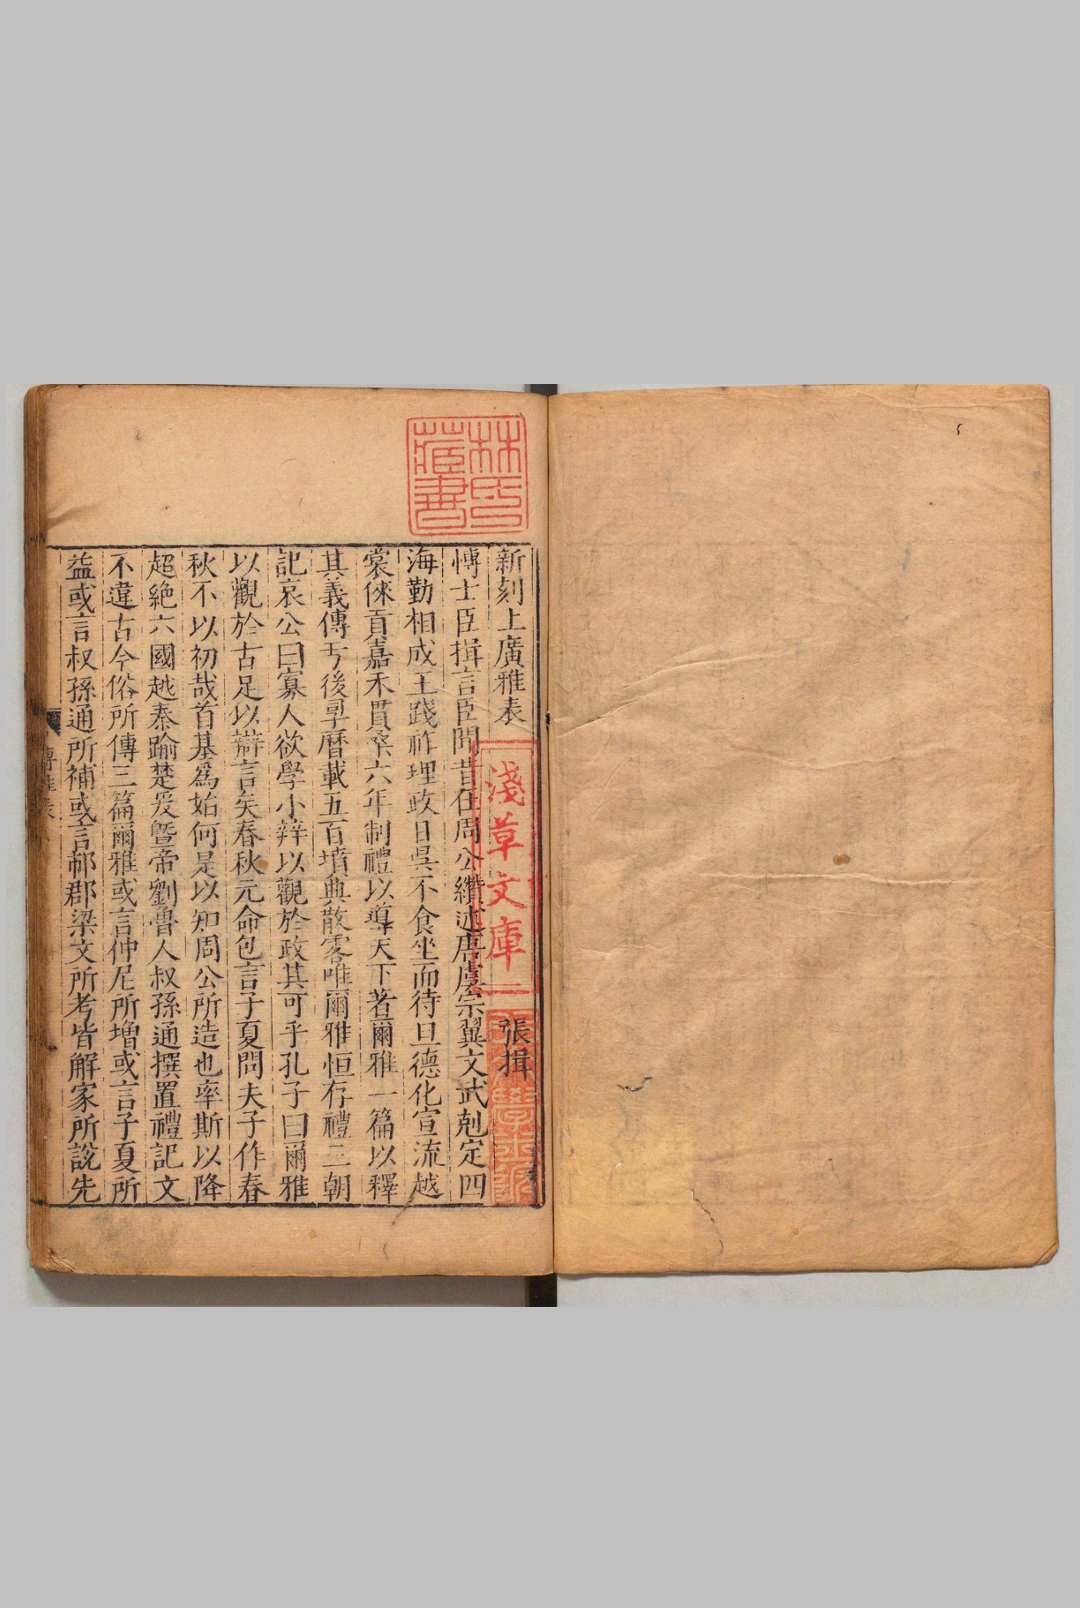 新刻上廣雅表
張揖
愽士臣揖言臣聞昔在周公纘述唐虞宗翼文武剋定四
海勤相成王踐祚理政日昃不食坐而待旦德化宣流越
裳倈貢嘉禾貫桑六年制禮以導天下著爾雅一篇以釋
其義傳于後嗣曆載五百墳典散零唯爾雅恒存禮三朝
記哀公曰寡人欲學小辯以觀於政其可乎孔子曰爾雅
以觀於古足以辯言矣春秋元命包言子夏問夫子作春
秋不以初哉首基為始何是以知周公所造也率斯以降
超絶六國越秦踰楚爰曁帝劉魯人叔孫通撰置禮記文
不違古今俗所傳三篇爾雅或言仲尼所增或言子夏所
益或言叔孫通所補或言郁郡梁文所考皆解家所說先
林氏藏書
淺草文庫